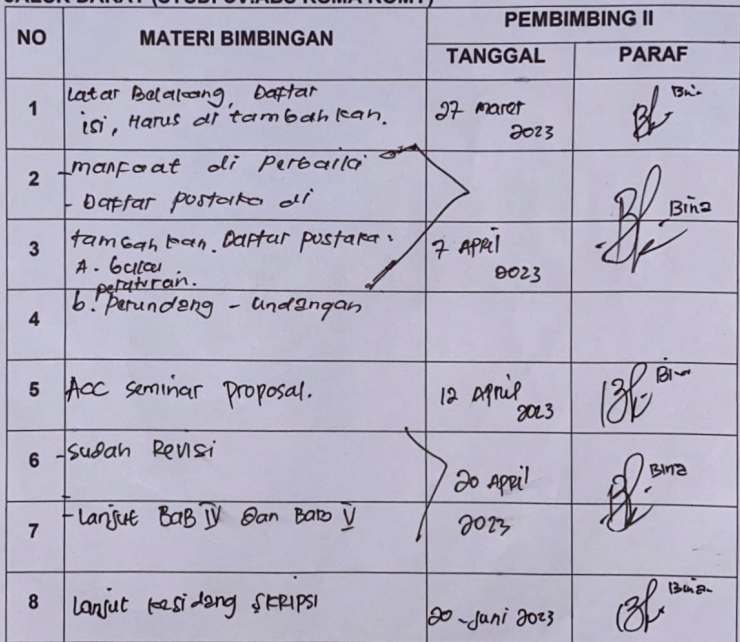 PEMBIMBING II
NO MATERI BIMBINGAN TANGGAL PARAF
1 Latar Belakang, Daftar
isi, Harus di tambahkan.
27 maret
2023
Bina
2 - manfaat di Perbaiki
- Daftar pustaka di
3 tambahkan. Daftar pustaka.
A. buku
peraturan.
7 April
2023
Bina
4 b. Perundang - undangan
5 Acc seminar Proposal.
12 April
2023
Bina
6 - sudah Revisi
20 April
Bina
7 - Lanjut BaB IV dan Bab V
2023
8 Lanjut kesidang SKRIPSI
20 - Juni 2023
Bina